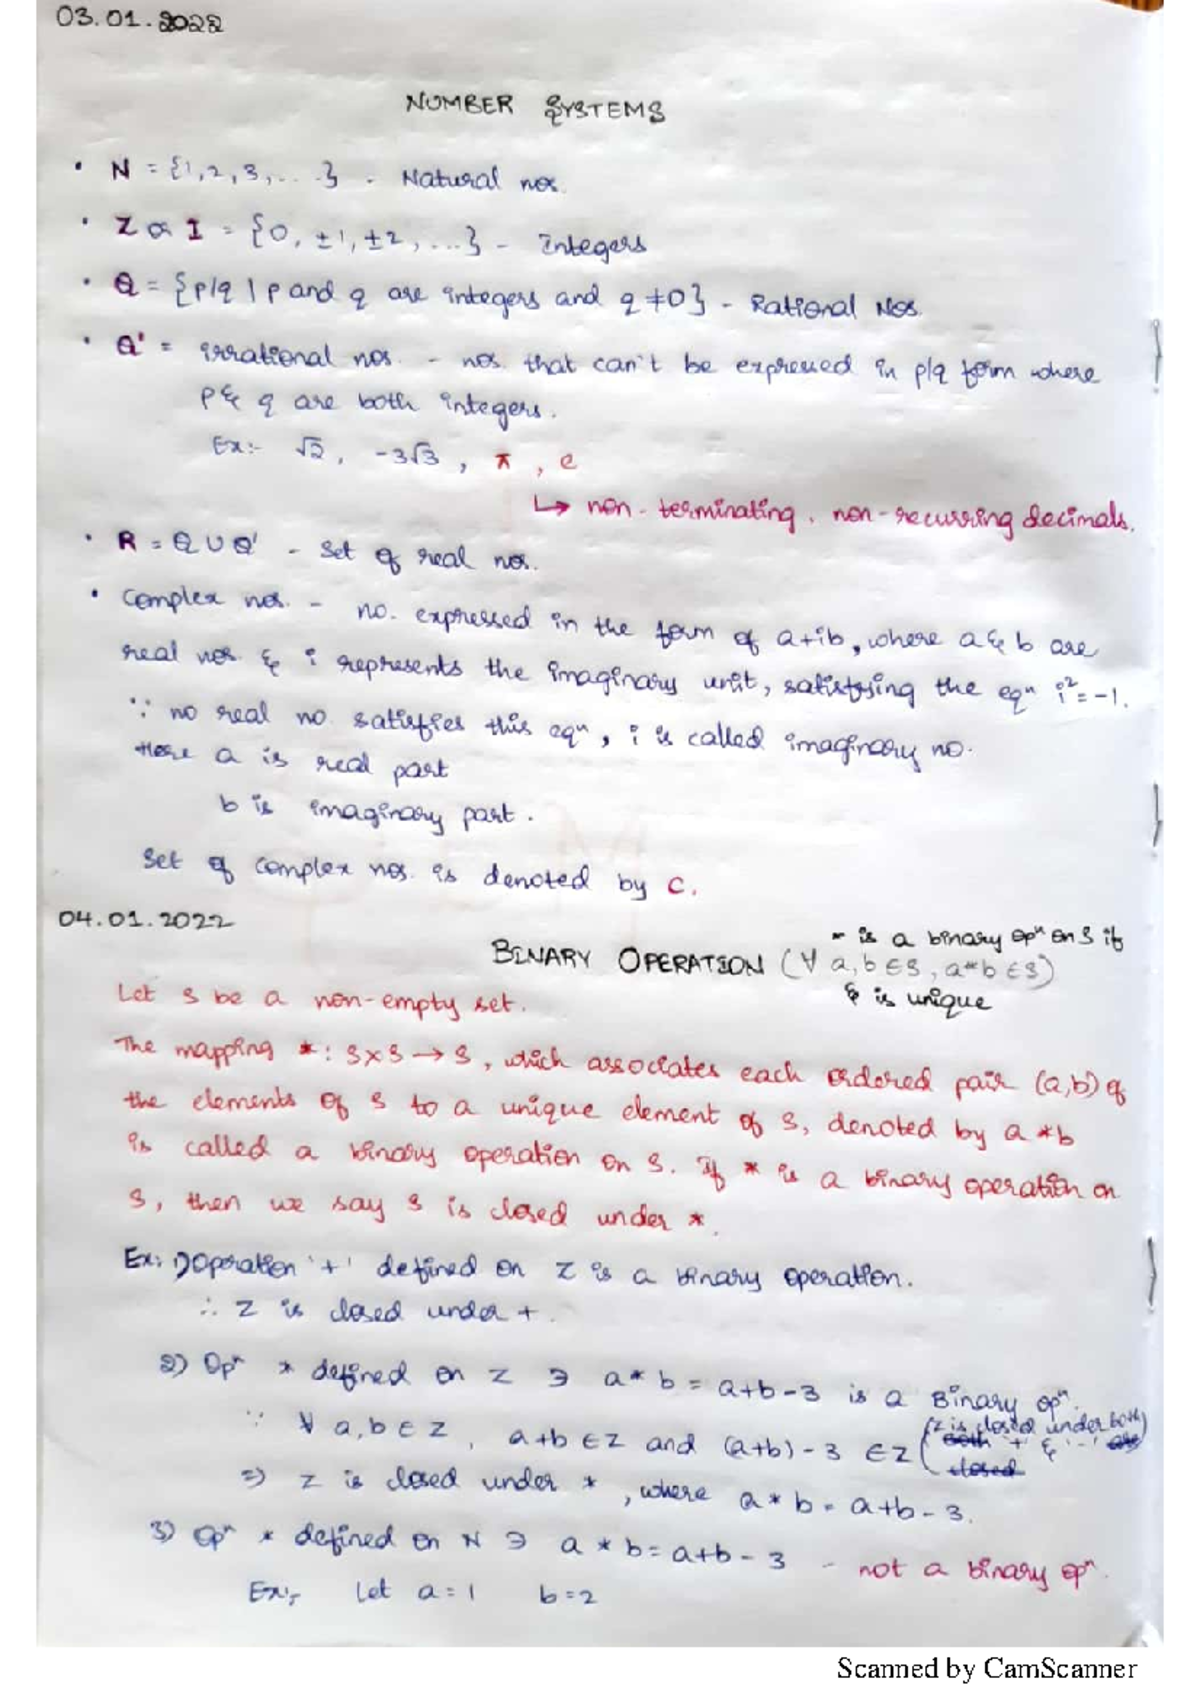 03.01.2022
NUMBER SYSTEMS
• N = {1,2,3,....} - Natural nos.
• Z or I = {0, ±1, ±2, ...} - Integers
• Q = {p/q | p and q are integers and q ≠ 0} - Rational Nos.
• Q' = irrational nos. - nos. that can't be expressed in p/q form where
p & q are both integers.
Ex:- √2, -3√3, π, e
↳ non-terminating, non-recurring decimals.
• R = Q ∪ Q' - Set of real nos.
• Complex nos. - no. expressed in the form of a+ib, where a & b are
real nos. & i represents the imaginary unit, satisfying the eqⁿ i² = -1.
∵ no real no. satisfies this eqⁿ, i is called imaginary no.
Here a is real part
b is imaginary part.
Set of complex nos. is denoted by C.
04.01.2022
* is a binary opⁿ on S if
BINARY OPERATION (∀ a,b ∈ S, a*b ∈ S)
& is unique
Let S be a non-empty set.
The mapping *: S×S → S, which associates each ordered pair (a,b) of
the elements of S to a unique element of S, denoted by a*b
is called a binary operation on S. If * is a binary operation on
S, then we say S is closed under *.
Ex: 1) Operation '+' defined on Z is a binary operation.
∴ Z is closed under +.
2) Opⁿ * defined on Z ∋ a*b = a+b-3 is a Binary opⁿ.
∵ ∀ a,b ∈ Z, a+b ∈ Z and (a+b)-3 ∈ Z (Z is closed under both
both + & '-' are)
closed
⇒ Z is closed under *, where a*b = a+b-3.
3) Opⁿ * defined on N ∋ a*b = a+b-3 - not a binary opⁿ.
Ex:- Let a=1 b=2
Scanned by CamScanner